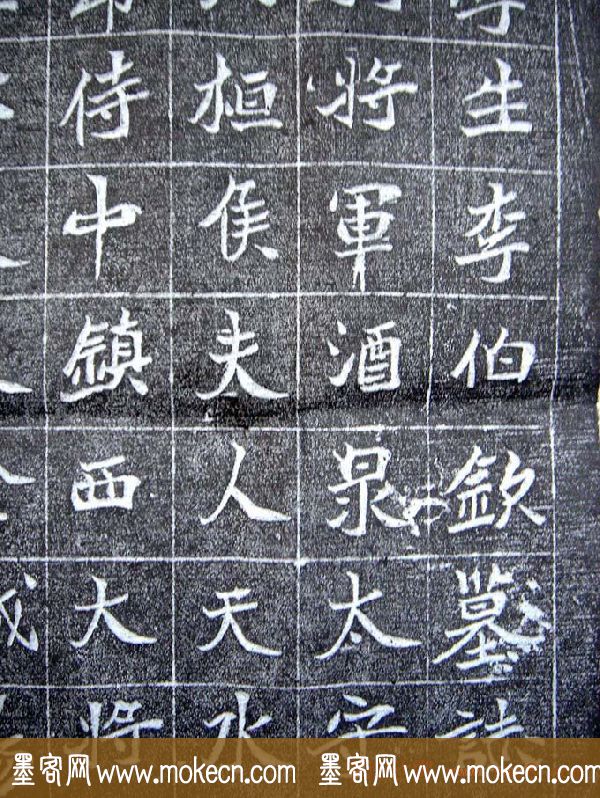 生李伯欽墓誌
將軍酒泉太守
桓侯夫人天水
侍中鎮西大將
墨客网 www.mokecn.com 墨客网 www.mokecn.com